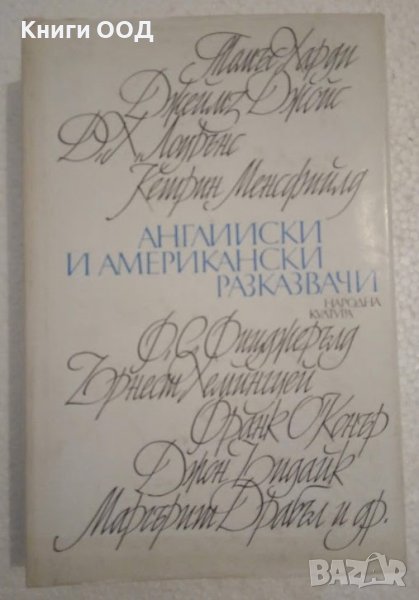 Книги ООД
Томъс Харди
Джеймз Джойс
Д. Х. Лорънс
Кетрин Менсфийлд
АНГЛИЙСКИ
И АМЕРИКАНСКИ
РАЗКАЗВАЧИ
НАРОДНА
КУЛТУРА
Ф. С. Фицджералд
Ърнест Хемингуей
Франк О'Конър
Джон Ъпдайк
Маргърит Драбъл и др.
BAZAR